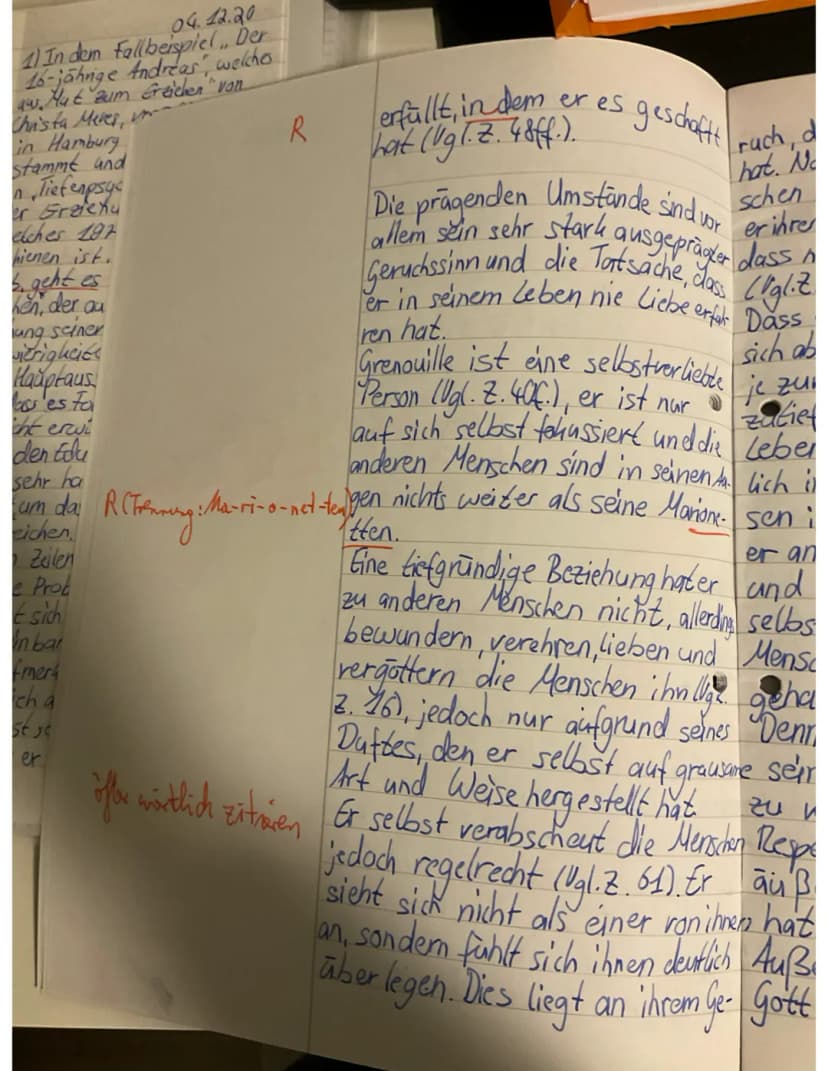 04.12.20
1) In dem Fallbeispiel „Der
16-jährige Andreas", welches
aus „Mut zum Erziehen" von
Christa Meves,
in Hamburg
stammt und
n „Tiefenpsyc
er Erziehu
elches 197
hienen ist.
geht es
hen, der au
ung seiner
wierigkeite
Hauptaus
dass es Fa
cht erwi
den Edu
sehr ha
um da
eichen.
Zeilen
e Prob
t sich
inbar
fmerk
ich a
er
R
erfüllt, in dem er es geschafft
hat (Vgl. Z. 48ff.).
Die prägenden Umstände sind vor
allem sein sehr stark ausgeprägter
Geruchssinn und die Tatsache, dass
er in seinem Leben nie Liebe erfah
ren hat.
Grenouille ist eine selbstverliebte
Person (Vgl. Z. 40f.), er ist nur
auf sich selbst fokussiert und die
anderen Menschen sind in seinen Au-
R (Trennung: Ma-ri-o-net-ten)
gen nichts weiter als seine Marione-
tten.
Eine tiefgründige Beziehung hat er
zu anderen Menschen nicht, allerdings
bewundern, verehren, lieben und
vergöttern die Menschen ihn (Vgl.
Z. 16), jedoch nur aufgrund seines
Duftes, den er selbst auf grausame
Art und Weise hergestellt hat.
öfter wörtlich zitieren
Er selbst verabscheut die Menschen
jedoch regelrecht (Vgl. Z. 61). Er
sieht sich nicht als einer von ihnen
an, sondern fühlt sich ihnen deutlich
überlegen. Dies liegt an ihrem Ge-
ruch, d
hat. No
schen
er ihre
dass h
(Vgl. Z
Dass
sich ab
je zu
zutief
Leber
lich i
sen i
er an
und
selbs
Mensc
geha
Denn
sein
zu v
Respe
äuß
hat
Auße
Gott